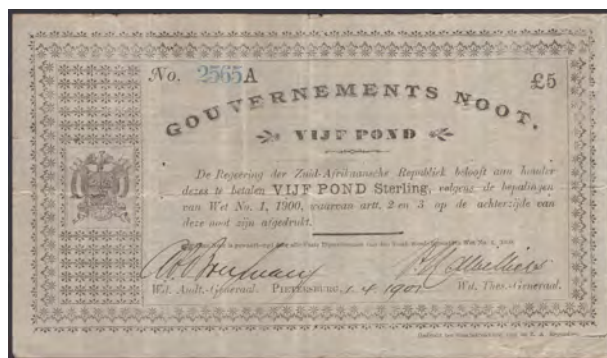 No. 2565A £5
GOUVERNEMENTS NOOT.
VIJF POND
De Regeering der Zuid-Afrikaansche Republiek belooft aan houder
dezes te betalen VIJF POND Sterling, volgens de bepalingen
van Wet No. 1, 1900, waarvan artt. 2 en 3 op de achterzijde van
deze noot zijn afgedrukt.
Wd. Audt.-Generaal. PIETERSBURG, 1.4.1901 Wd. Thes.-Generaal.